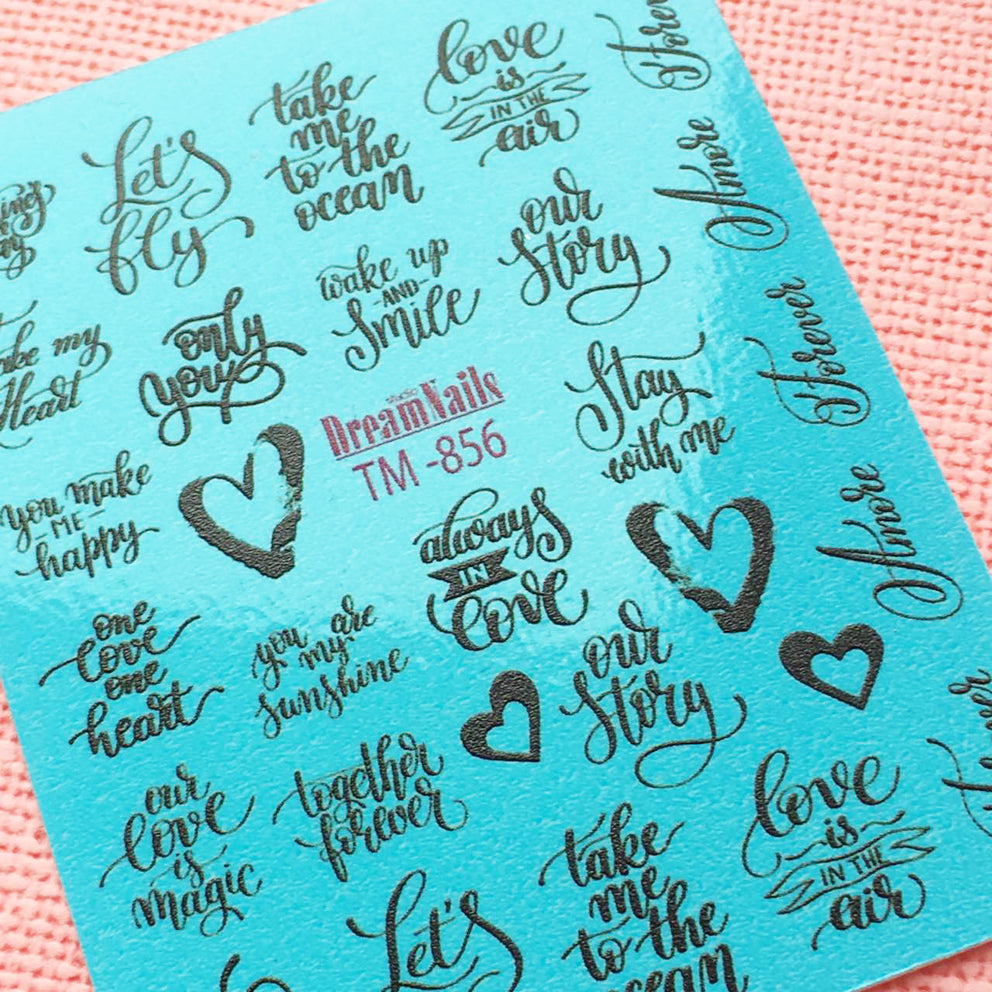 love
is
IN THE
air
Forever
take
me
to the
ocean
Let's
fly
Amore
our
Story
wake up
AND
Smile
only
you
my
Heart
Forever
Stay
with me
studio
DreamNails
TM -856
you make
ME
happy
always
IN
Love
Amore
one
Love
one
heart
you are
my
sunshine
our
Story
our
Love
is
magic
together
forever
love
is
IN THE
air
take
me
to the
ocean
Let's
Forever